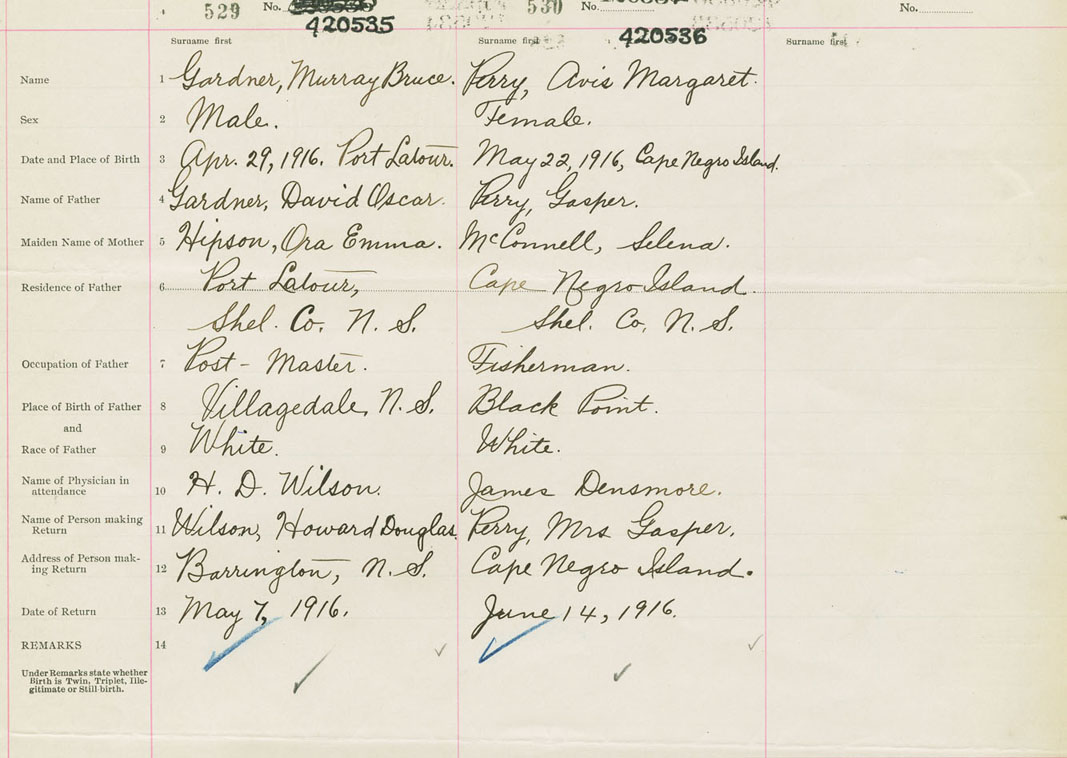 529 No. 530 No. No.
420535 420536
Surname first Surname first Surname first
Name 1 Gardner, Murray Bruce. Perry, Avis Margaret.
Sex 2 Male. Female.
Date and Place of Birth 3 Apr. 29, 1916. Port Latour. May 22, 1916, Cape Negro Island.
Name of Father 4 Gardner, David Oscar. Perry, Gasper.
Maiden Name of Mother 5 Hipson, Ora Emma. McConnell, Selena.
Residence of Father 6 Port Latour, Cape Negro Island.
Shel. Co. N. S. Shel. Co, N. S.
Occupation of Father 7 Post-Master. Fisherman.
Place of Birth of Father 8 Villagedale, N. S. Black Point.
and
Race of Father 9 White. White.
Name of Physician in
attendance 10 H. D. Wilson. James Densmore.
Name of Person making
Return 11 Wilson, Howard Douglas Perry, Mrs Gasper.
Address of Person mak-
ing Return 12 Barrington, N. S. Cape Negro Island.
Date of Return 13 May 7, 1916. June 14, 1916.
REMARKS 14
Under Remarks state whether
Birth is Twin, Triplet, Ille-
gitimate or Still-birth.